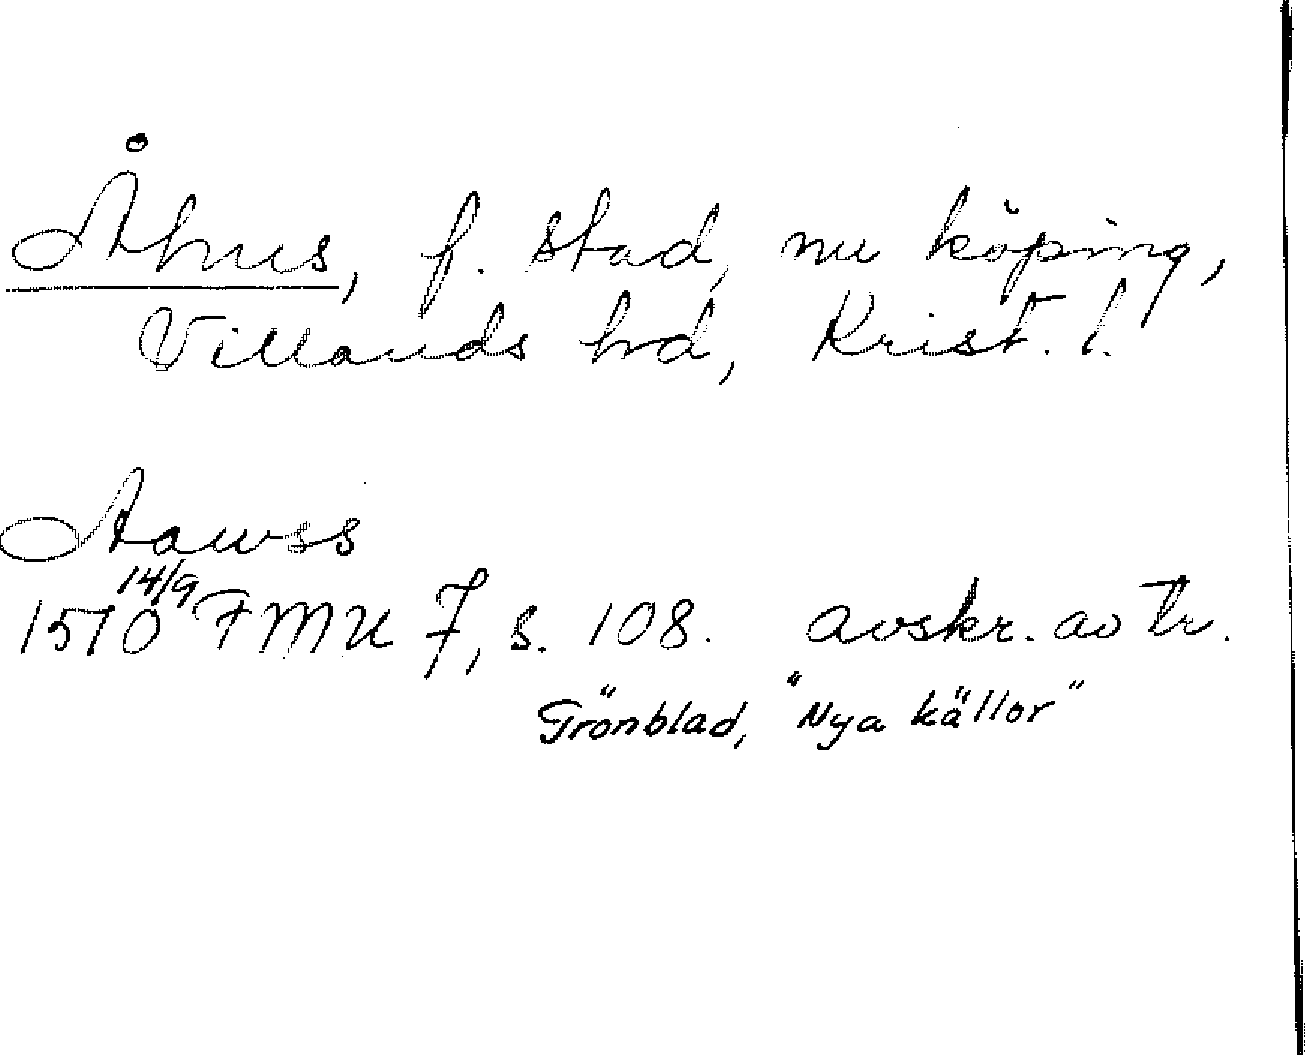 Åhus, f. stad, nu köping,
Villands hd, Krist. l.
Aawss
1510 14/9 FMU 7, s. 108. avskr. av tr.
Grönblad, "Nya källor"